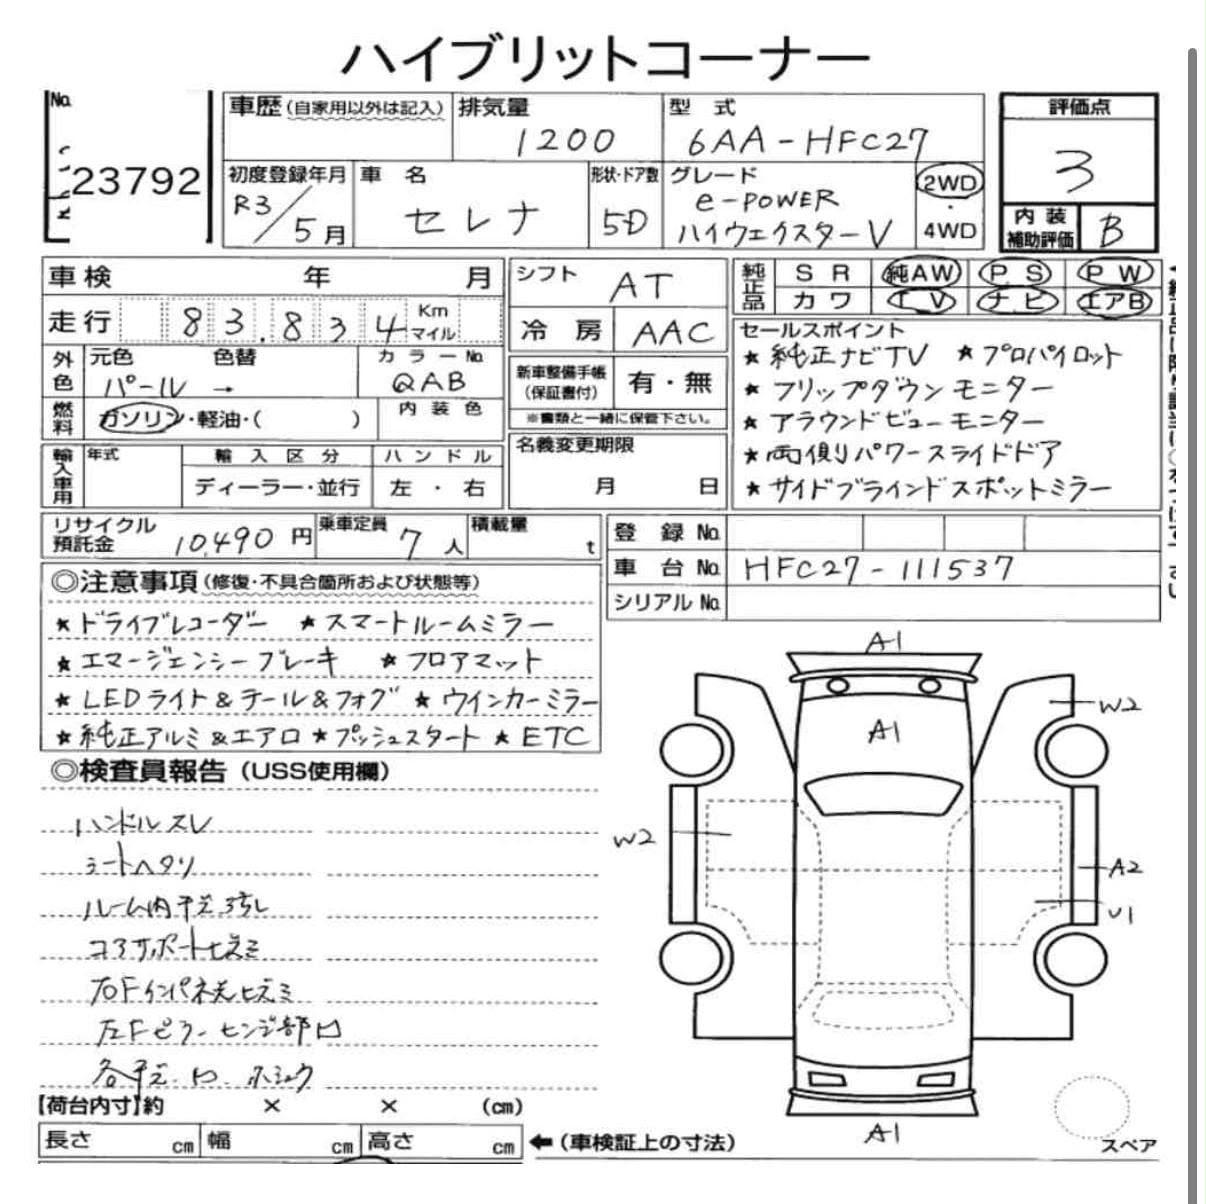 ハイブリットコーナー
No.
23792
車歴(自家用以外は記入)
排気量
1200
型 式
6AA-HFC27
評価点
3
初度登録年月
R3/5月
車 名
セレナ
形状・ドア数
5D
グレード
e-POWER
ハイウェイスターV
2WD
・
4WD
内 装
補助評価
B
車検 年 月
シフト
AT
純正品
S R 純AW P S P W
カワ T V ナビ エアB
走行 8 3 . 8 3 4 Km マイル
冷 房 AAC
セールスポイント
★純正ナビTV ★プロパイロット
★フリップダウンモニター
★アラウンドビューモニター
★両側パワースライドドア
★サイドブラインドスポットミラー
外色
元色 色替 カラーNo.
パール → QAB
新車整備手帳
(保証書付)
有・無
※書類と一緒に保管下さい。
燃料
ガソリン・軽油・( )
内 装 色
名義変更期限
月 日
輸入車用
年式
輸 入 区 分
ハ ン ド ル
ディーラー・並行
左 ・ 右
リサイクル
預託金
10,490 円
乗車定員
7 人
積載量
t
登 録 No.
車 台 No. HFC27-111537
シリアル No.
◎注意事項(修復・不具合箇所および状態等)
★ドライブレコーダー ★スマートルームミラー
★エマージェンシーブレーキ ★フロアマット
★LEDライト&テール&フォグ ★ウインカーミラー
★純正アルミ&エアロ ★プッシュスタート ★ETC
◎検査員報告(USS使用欄)
ハンドルスレ
シートヘタリ
ルーム内
コアサポートヒズミ
右Fインパネ
左Fピラーヒンジ部
A1
A1
W2
W2
A2
U1
A1
スペア
【荷台内寸】約 × × (cm)
長さ cm 幅 cm 高さ cm
←(車検証上の寸法)